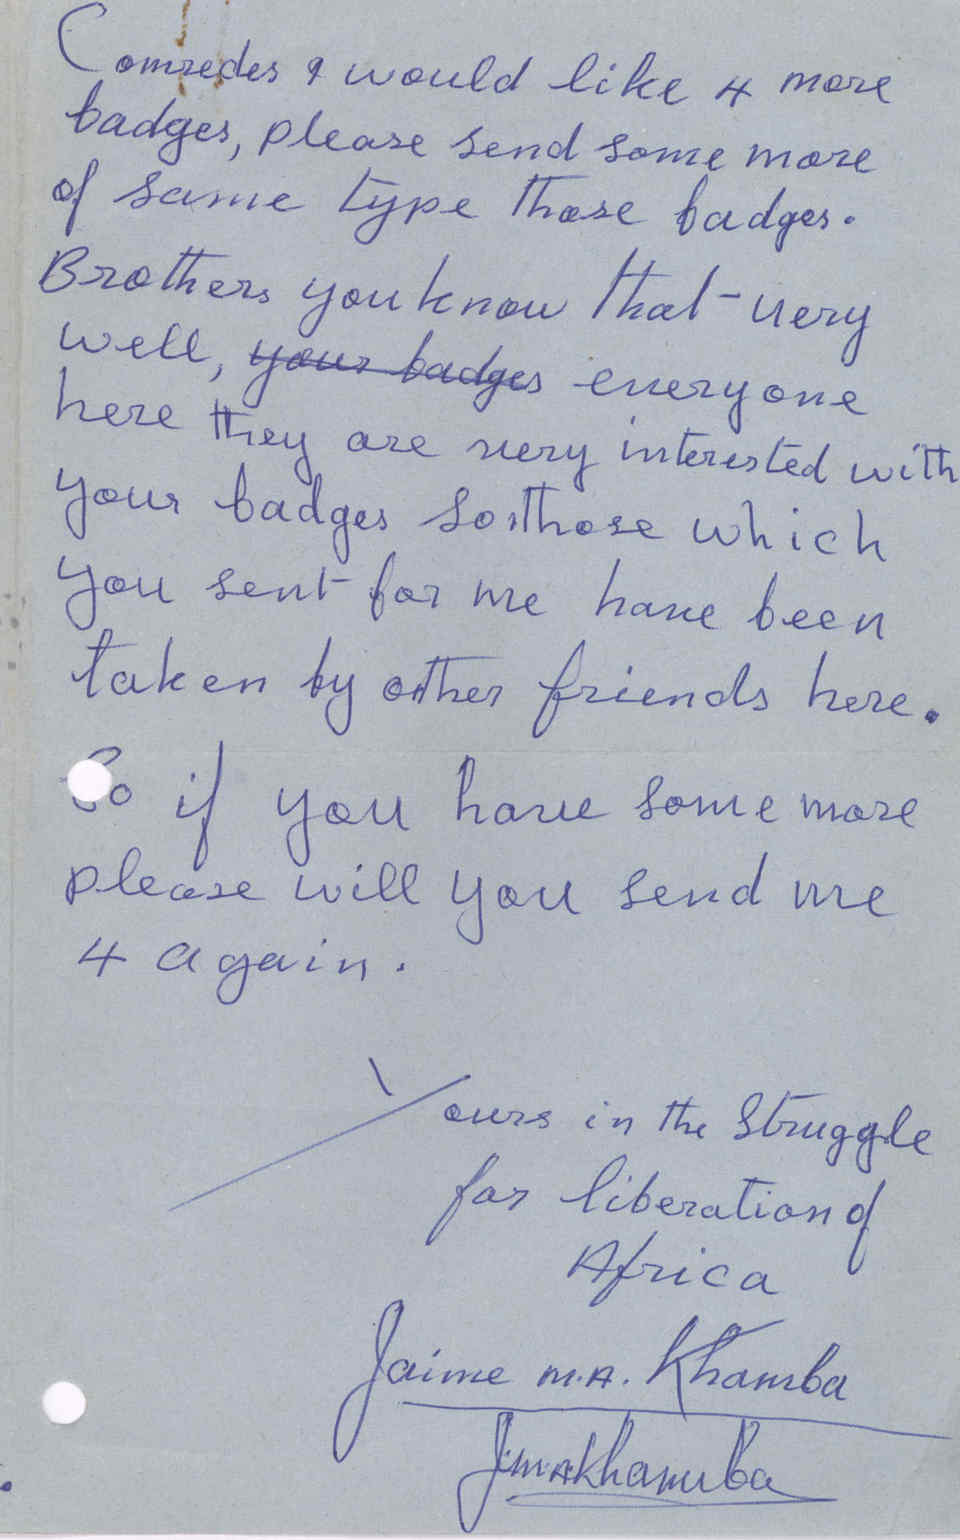 Comredes I would like 4 more
badges, please send some more
of same type those badges.
Brothers you know that very
well, your badges everyone
here they are very interested with
your badges so those which
you sent for me have been
taken by other friends here.
So if you have some more
please will you send me
4 again.
Yours in the Struggle
for liberation of
Africa
Jaime M.A. Khamba
J.M.A Khamba